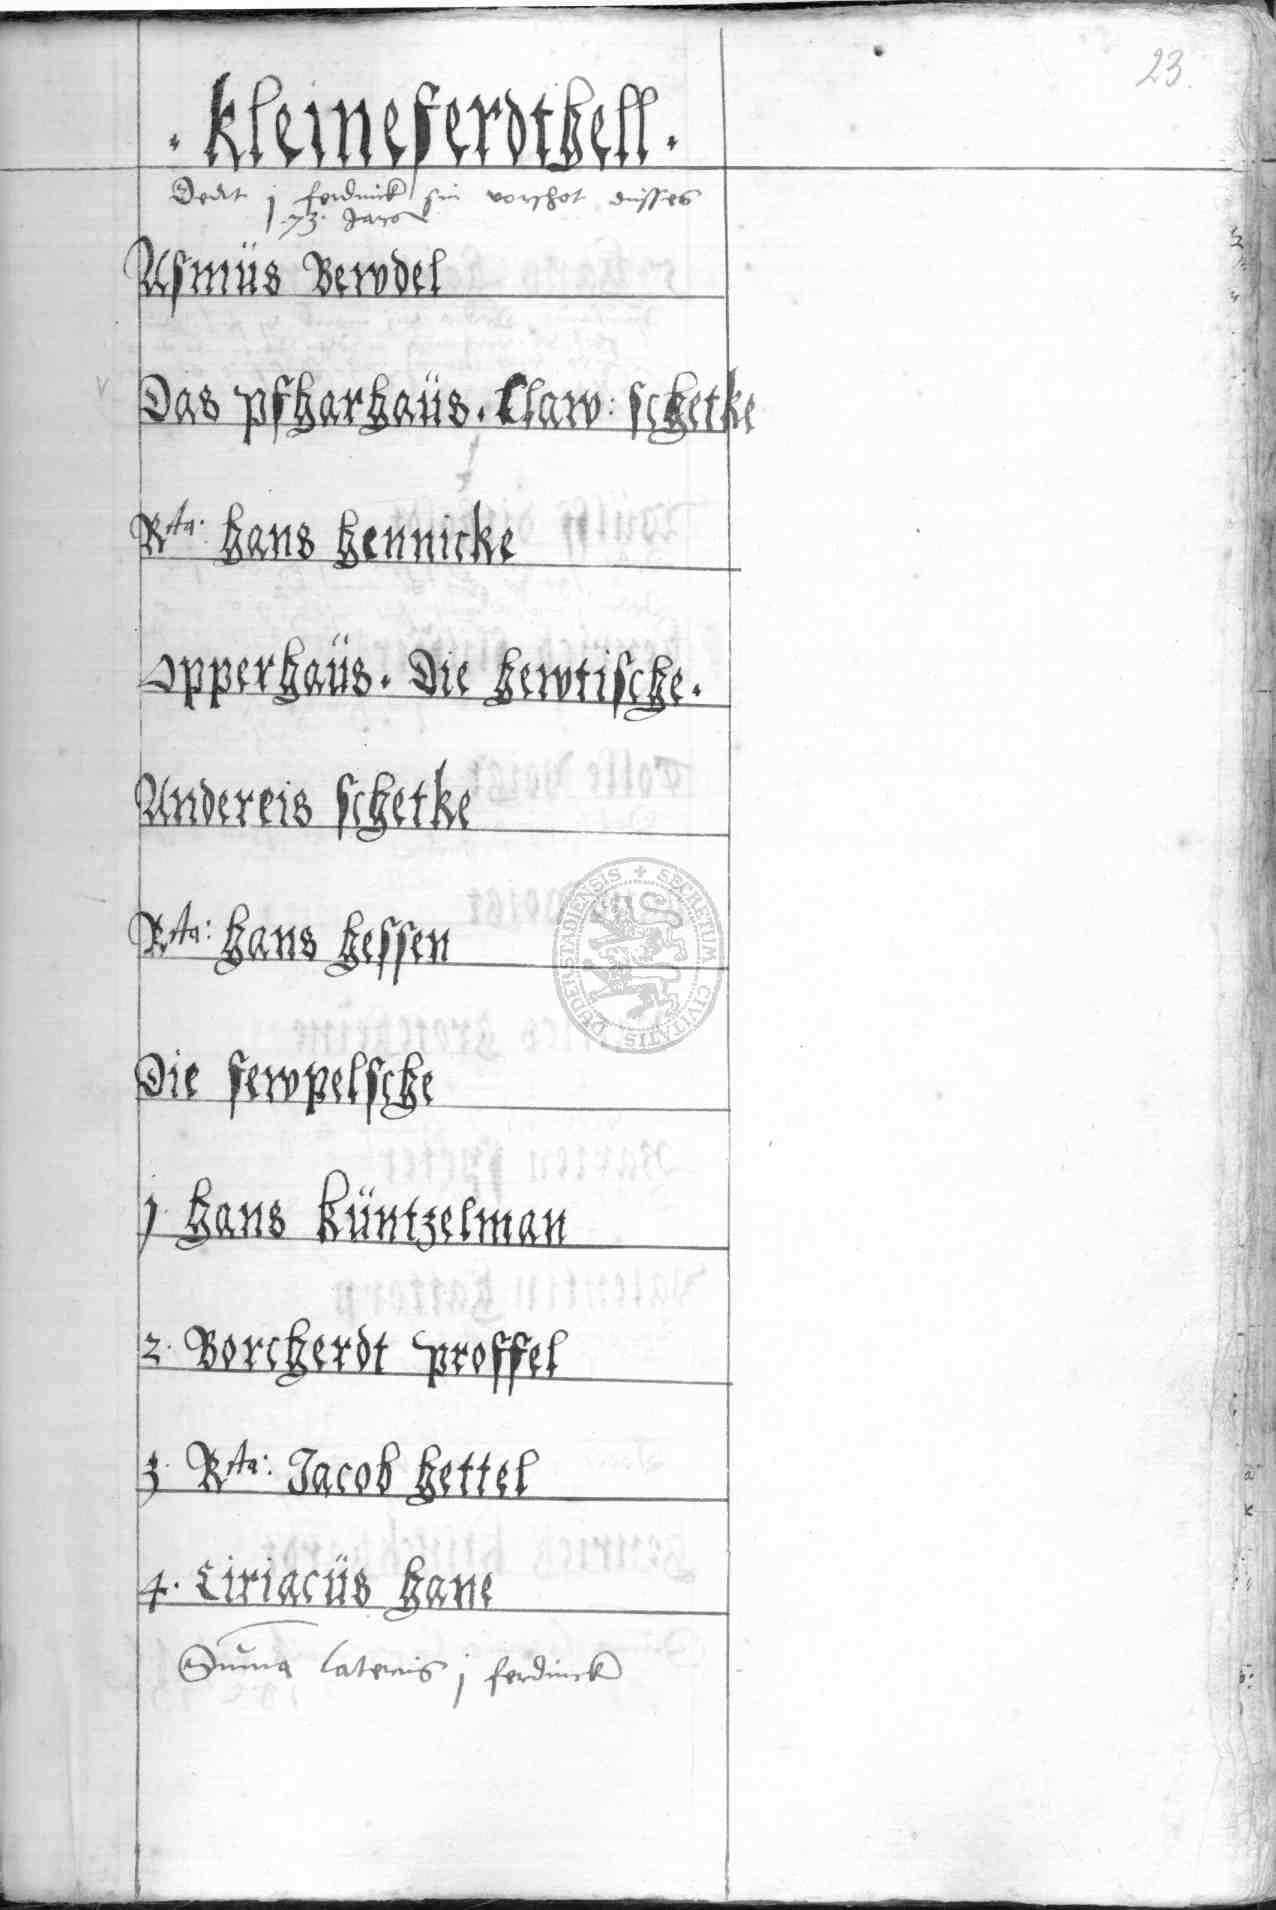 23.
. kleineferdthell .
Dedit j ferdinck sin vorschot disses
.73. Jares
Asmüs Bewdel
Das pfharhaüs . Claw: schetke
Rta: hans hennicke
Opperhaüs . Die hewtische .
Andereis schetke
Rta: hans hessen
Die fewpelsche
1. hans küntzelman
2. Borcherdt proffel
3. Rta: Jacob hettel
4. Ciriacüs hane
Suma lateris j ferdinck
SECRETUM CIVITATIS DUDERSTADIENSIS